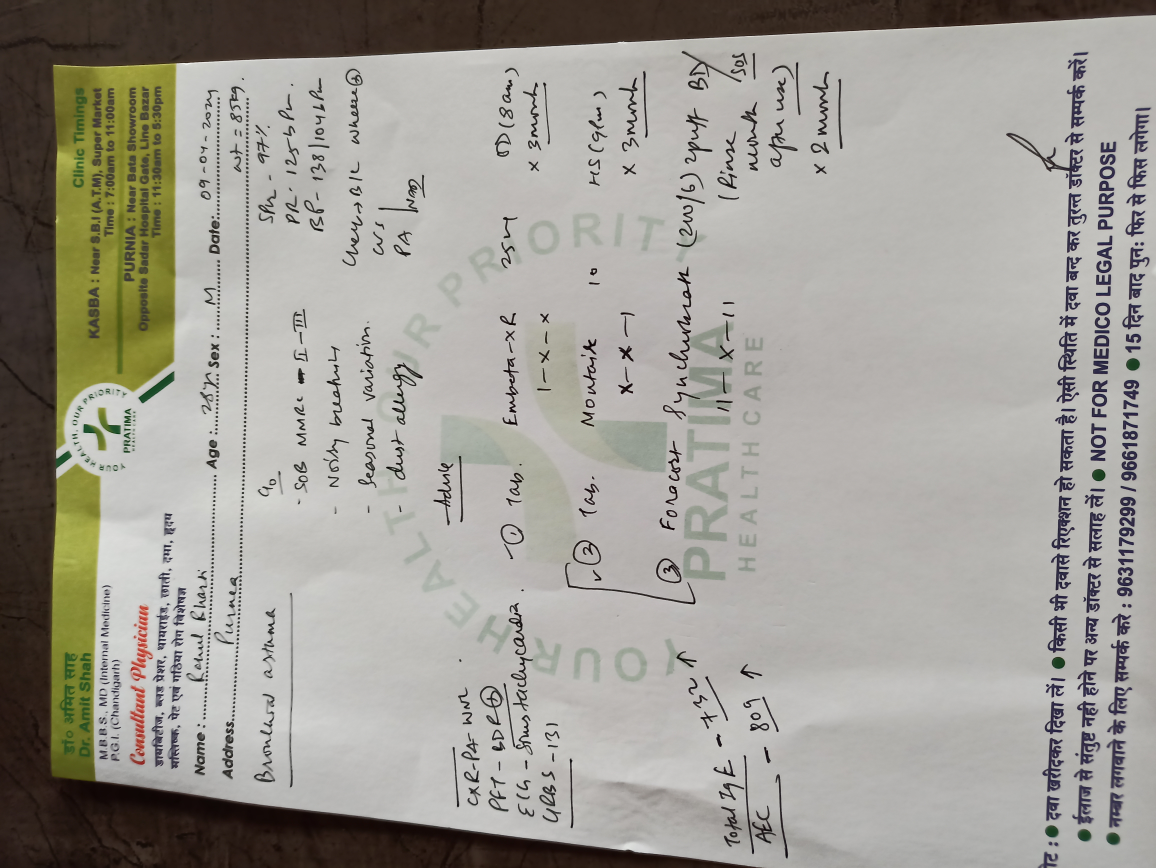 डॉ० अमित साह
Dr. Amit Shah
M.B.B.S., MD (Internal Medicine)
P.G.I. (Chandigarh)
Consultant Physician
डायबिटीज, ब्लड प्रेशर, थायराईड, छाती, दमा, हृदय
मस्तिष्क, पेट एवं गठिया रोग विशेषज्ञ
YOUR HEALTH, OUR PRIORITY
PRATIMA
HEALTHCARE
Clinic Timings
KASBA : Near S.B.I (A.T.M), Super Market
Time : 7:00am to 11:00am
PURNIA : Near Bata Showroom
Opposite Sadar Hospital Gate, Line Bazar
Time : 11:30am to 5:30pm
Name : Rahul Bharti Age : 28Y Sex : M Date: 09-04-2024
Address Purnea wt = 85kg.
Bronchial asthma
c/o
- SOB MMRC - II - III
- Noisy breathing
- Seasonal variation.
- dust allergy
SPO2 - 97%
PR - 125 bpm.
BP - 138/104
Chest - B/L wheeze ⊕
CVS
PA NAD
CXR-PA-WNL.
PFT - BDR ⊕
ECG - Sinus tachycardia.
GRBS - 131
Total IgE - 732 ↑
AEC - 809 ↑
Advice
① Tab. Embeta-XR 25mg OD (8am)
1-x-x x 3month
② Tab. Montair 10 HS (9pm)
x-x-1 x 3month
③ Foracort Synchrobreath (200/6) 2puff BD/SOS
11-x-11 (Rinse mouth after use)
x 2month
YOUR HEALTH OUR PRIORITY
PRATIMA
HEALTHCARE
● दवा खरीदकर दिखा लें। ● किसी भी दवासे रिएक्शन हो सकता है। ऐसी स्थिति में दवा बन्द कर तुरन्त डॉक्टर से सम्पर्क करें।
● ईलाज से संतुष्ट नही होने पर अन्य डॉक्टर से सलाह लें। ● NOT FOR MEDICO LEGAL PURPOSE
● नम्बर लगवाने के लिए सम्पर्क करे : 9631179299 / 9661871749 ● 15 दिन बाद पुन: फिर से फिस लगेगा।